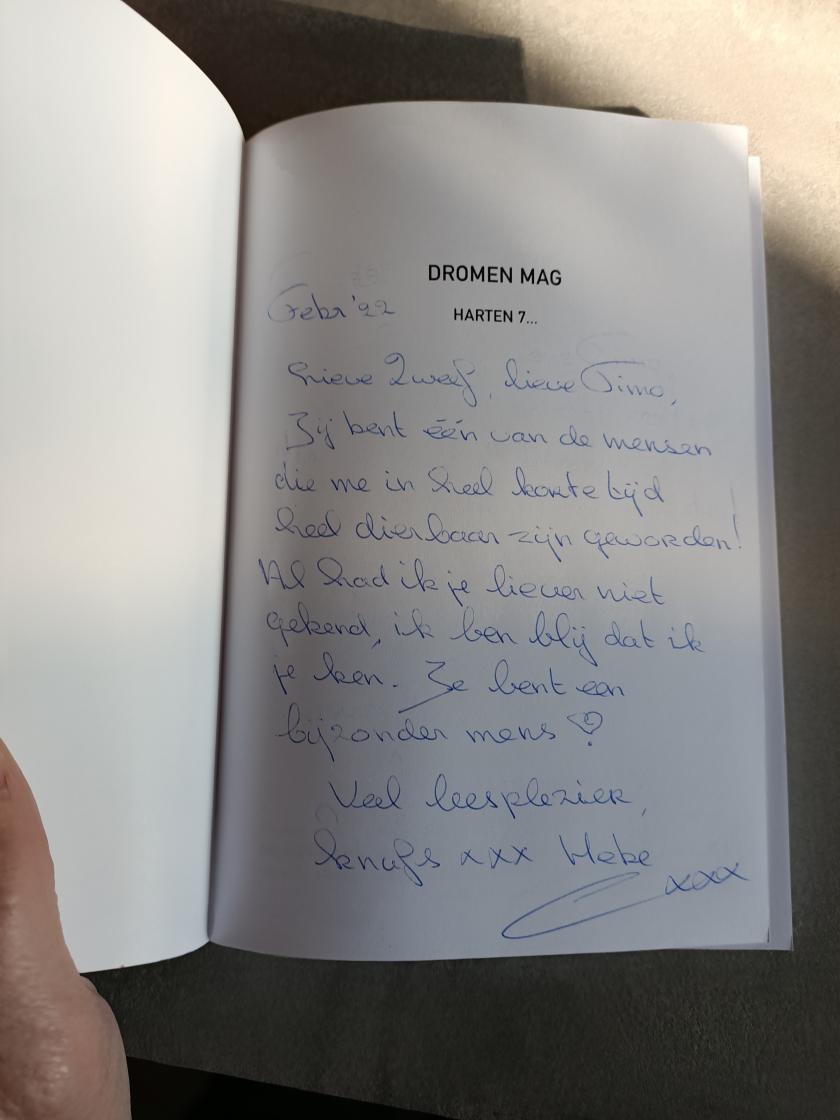 DROMEN MAG
HARTEN 7...
Febr '22
Lieve Zweef, lieve Timo,
Jij bent één van de mensen
die me in heel korte tijd
heel dierbaar zijn geworden!
Al had ik je liever niet
gekend, ik ben blij dat ik
je ken. Je bent een
bijzonder mens
Veel leesplezier,
knufs xxx
xxx